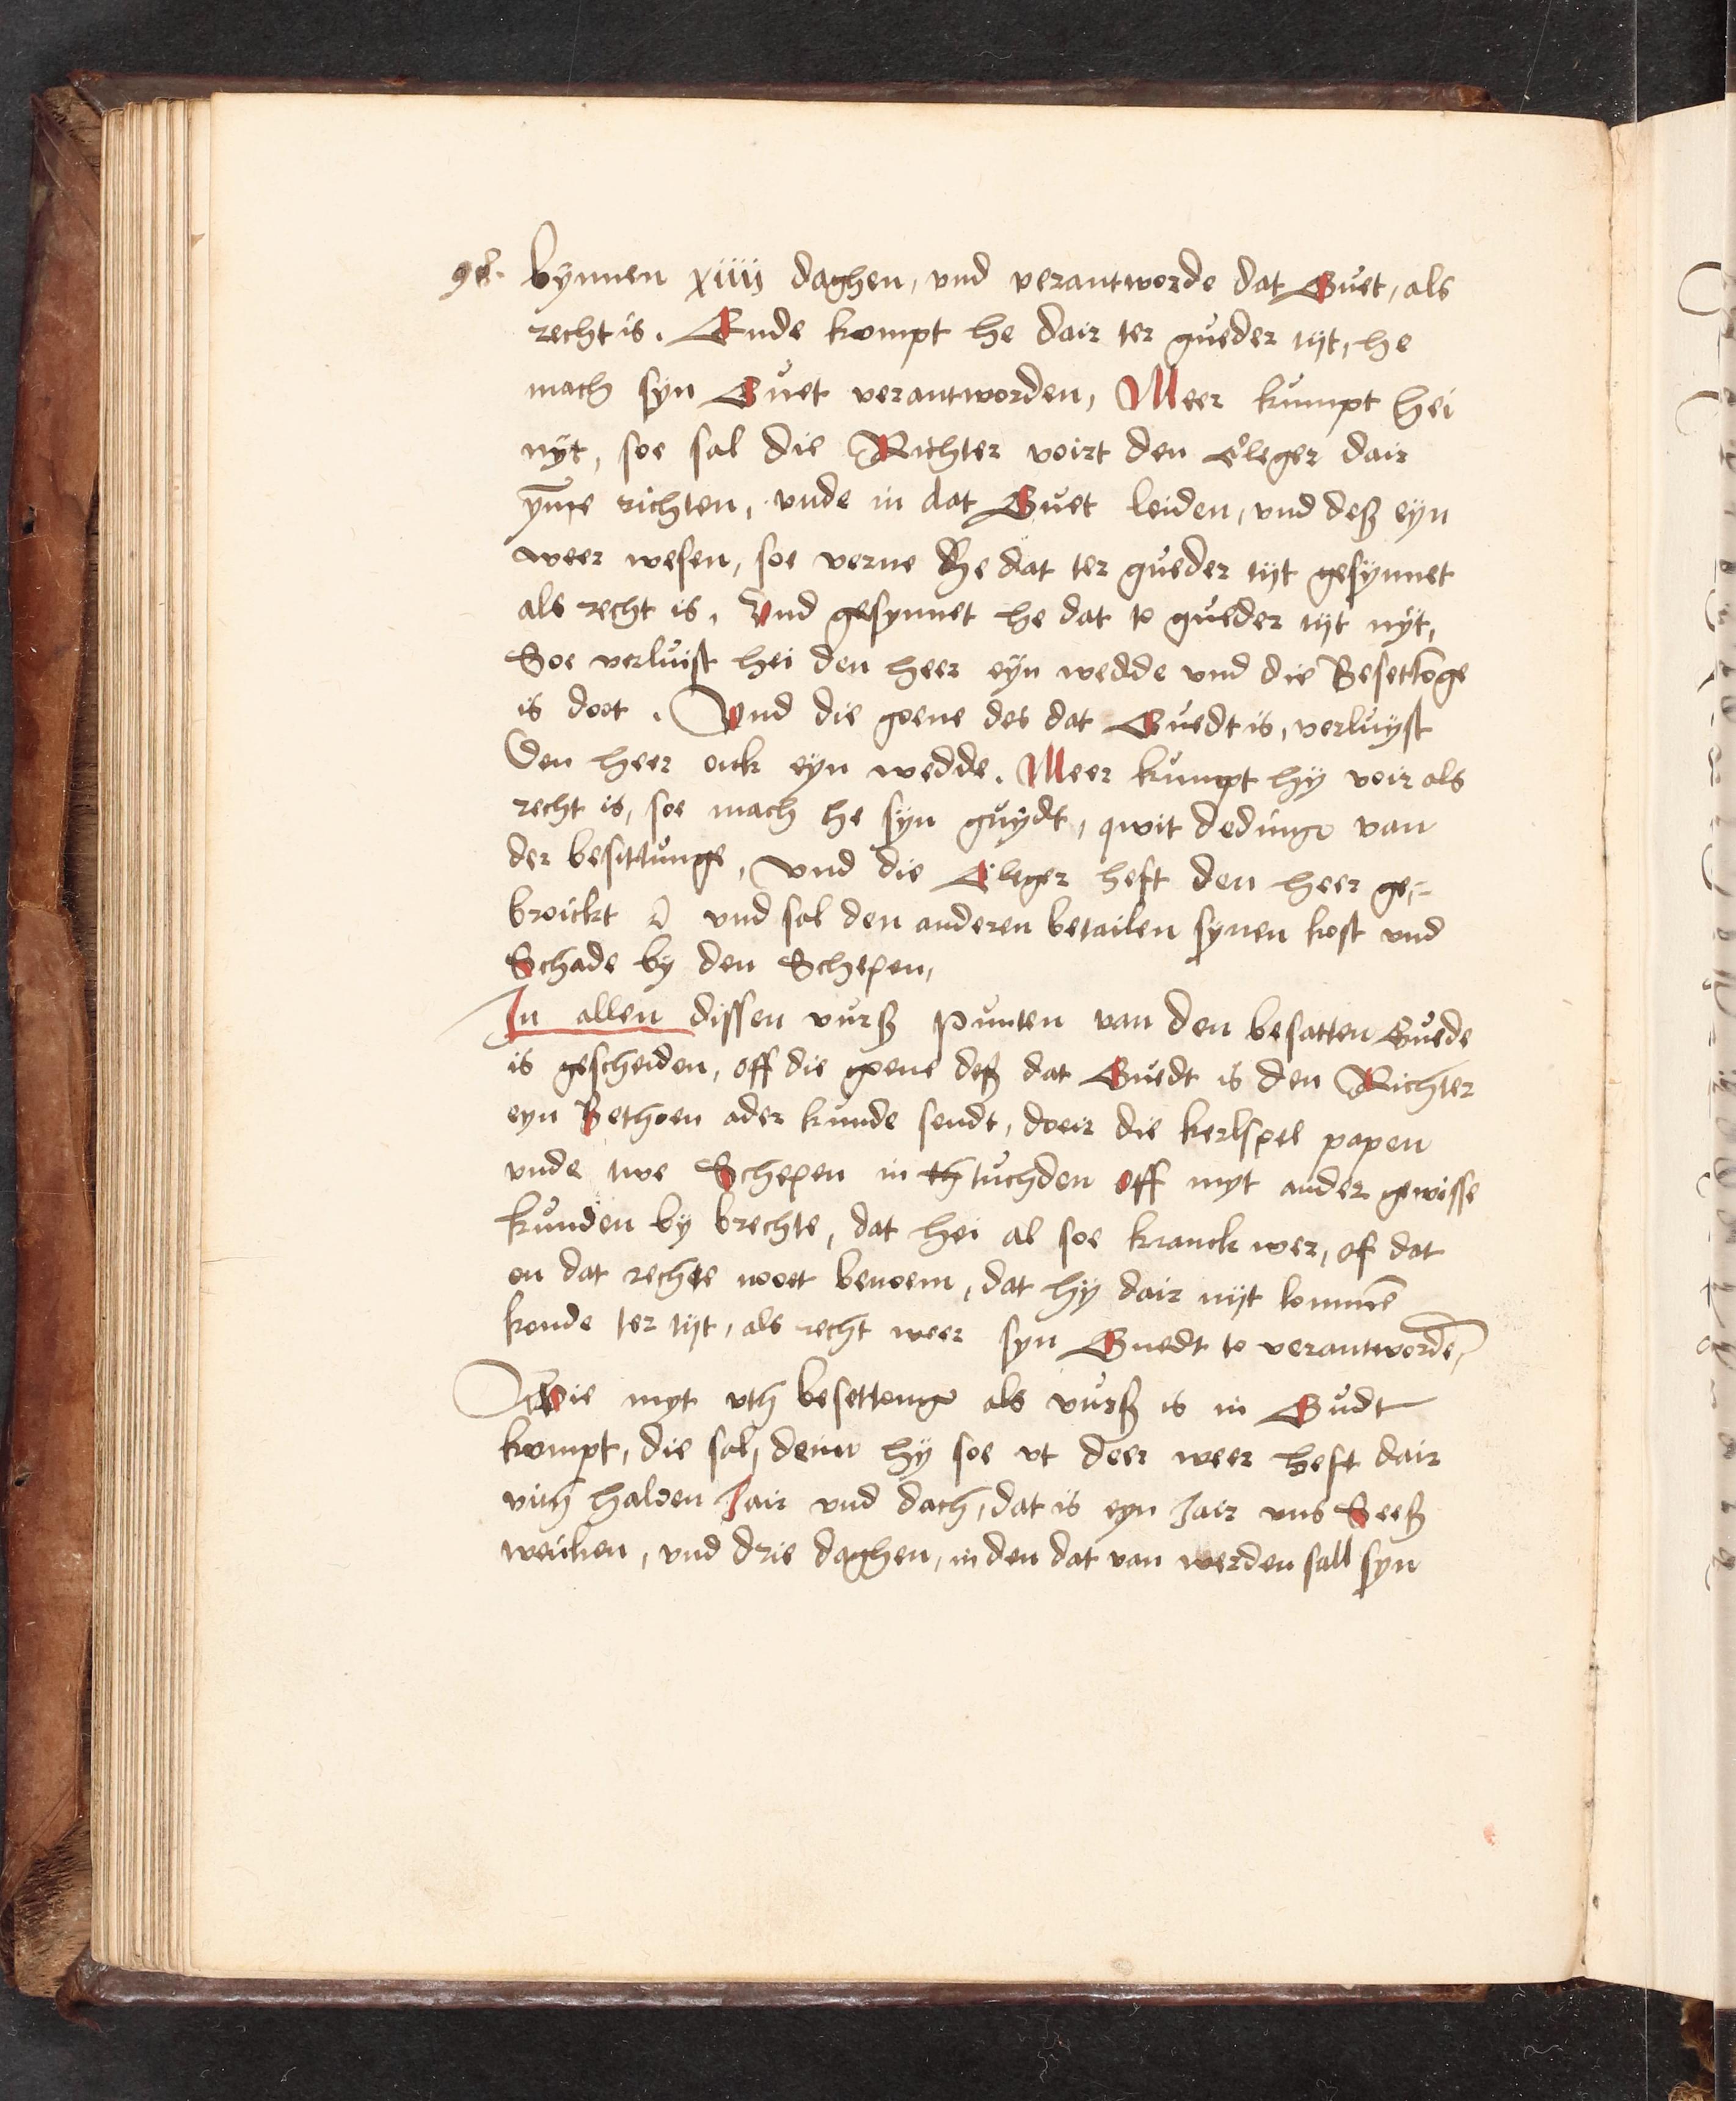 98. bynnen xiiij daghen, vnd verantworde dat Guet, als
recht is. Ende kompt he dair ter gueder tijt, he
mach syn Guet verantworden, Meer kumpt hei
nyt, soe sal die Richter voirt den Cleger dair
ynne richten, vnde in dat Guet leiden, vnd deß eyn
weer wesen, soe verne he dat ter gueder tijt gesynnet
als recht is. Vnd gesynnet he dat to gueder tijt nyt,
Soe verluist hei den heer eyn wedde vnd die Besettoge
is doot. Vnd die goene des dat Guedt is, verluyst
Den heer ouk eyn wedde. Meer kumpt hy voir als
recht is, soe mach he syn guydt, qwit dedinge van
der besittunge, Vnd die Cleger heft den heer ge-
broickt vnd sal den anderen betailen synen kost vnd
Schade by den Schepen,
In allen dissen vurß punten van den besatten Guede
is gescheiden, off die goene deß dat Guedt is den Richter
eyn Bethoen ader kunde sendt, doeir die kerlspel papen
vnde twe Schepen in th tuchden off myt ander gewisse
kunden by brechte, dat hei al soe kranck wer, of dat
on dat rechte noet benoem, dat hy dair nijt komme
konde ter tijt, als recht weer syn Guedt to verantworde,
Wie myt vth besettonge als vurß is in Gudt
kompt, die sal, deinr hy soe vt deer weer heft dair
vith halden Jair vnd dach, dat is eyn Jair vns Seeß
weicken, vnd drie daghen, in den dat van werden sall syn